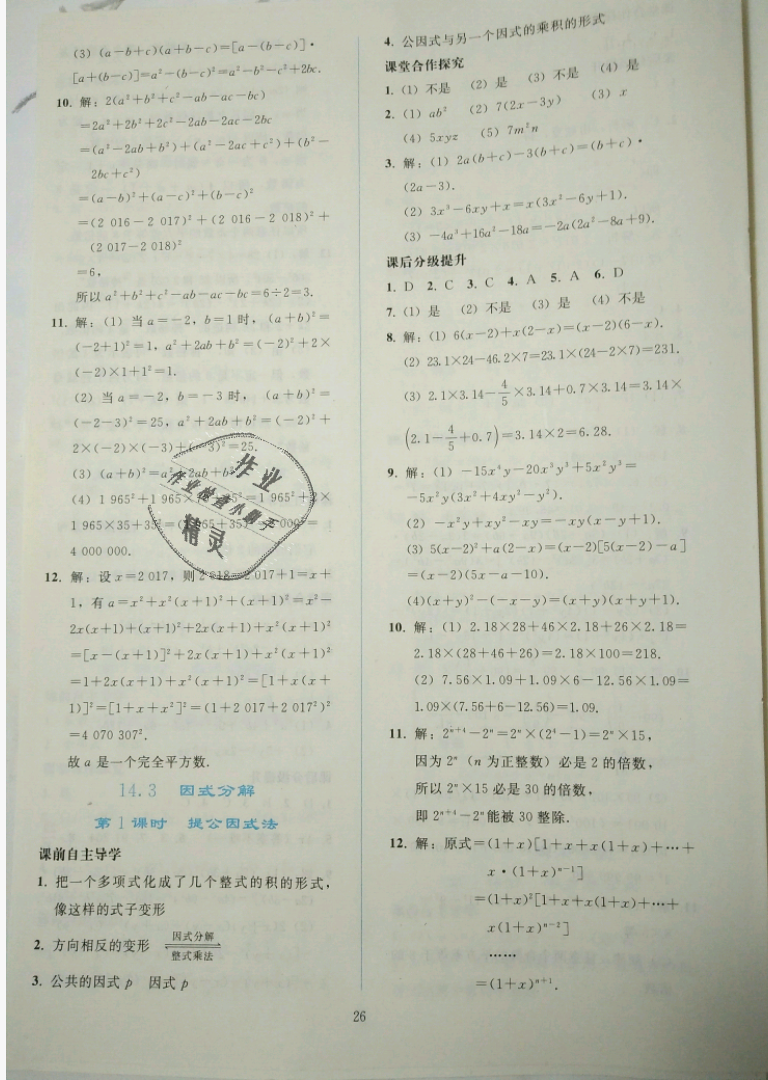 (3) (a－b+c)(a+b－c)=[a－(b－c)]·
[a+(b－c)]=a²－(b－c)²=a²－b²－c²+2bc.
10. 解：2(a²+b²+c²－ab－ac－bc)
=2a²+2b²+2c²－2ab－2ac－2bc
=(a²－2ab+b²)+(a²－2ac+c²)+(b²－
2bc+c²)
=(a－b)²+(a－c)²+(b－c)²
=(2 016－2 017)²+(2 016－2 018)²+
(2 017－2 018)²
=6，
所以 a²+b²+c²－ab－ac－bc=6÷2=3.
11. 解：(1) 当 a=－2，b=1 时，(a+b)²=
(－2+1)²=1，a²+2ab+b²=(－2)²+2×
(－2)×1+1²=1.
(2) 当 a=－2，b=－3 时，(a+b)²=
(－2－3)²=25，a²+2ab+b²=(－2)²+
2×(－2)×(－3)+(－3)²=25.
(3) (a+b)²=a²+2ab+b²
(4) 1 965²+1 965× =1 965²+2×
1 965×35+35²=(1 965+35)²= 000²=
4 000 000.
12. 解：设 x=2 017，则 2 018=2 017+1=x+
1，有 a=x²+x²(x+1)²+(x+1)²=x²－
2x(x+1)+(x+1)²+2x(x+1)+x²(x+1)²
=[x－(x+1)]²+2x(x+1)+x²(x+1)²
=1+2x(x+1)+x²(x+1)²=[1+x(x+
1)]²=[1+x+x²]²=(1+2 017+2 017²)²
=4 070 307².
故 a 是一个完全平方数.
14.3 因式分解
第1课时 提公因式法
课前自主导学
1. 把一个多项式化成了几个整式的积的形式，
像这样的式子变形
2. 方向相反的变形 因式分解
整式乘法
3. 公共的因式 p 因式 p
4. 公因式与另一个因式的乘积的形式
课堂合作探究
1. (1) 不是 (2) 是 (3) 不是 (4) 是
2. (1) ab² (2) 7(2x－3y) (3) x
(4) 5xyz (5) 7m²n
3. 解：(1) 2a(b+c)－3(b+c)=(b+c)·
(2a－3).
(2) 3x³－6xy+x=x(3x²－6y+1).
(3) －4a³+16a²－18a=－2a(2a²－8a+9).
课后分级提升
1. D 2. C 3. C 4. A 5. A 6. D
7. (1) 是 (2) 不是 (3) 是 (4) 不是
8. 解：(1) 6(x－2)+x(2－x)=(x－2)(6－x).
(2) 23.1×24－46.2×7=23.1×(24－2×7)=231.
(3) 2.1×3.14－4/5×3.14+0.7×3.14=3.14×
(2.1－4/5+0.7)=3.14×2=6.28.
9. 解：(1) －15x⁴y－20x³y³+5x²y³=
－5x²y(3x²+4xy²－y²).
(2) －x²y+xy²－xy=－xy(x－y+1).
(3) 5(x－2)²+a(2－x)=(x－2)[5(x－2)－a]
=(x－2)(5x－a－10).
(4)(x+y)²－(－x－y)=(x+y)(x+y+1).
10. 解：(1) 2.18×28+46×2.18+26×2.18=
2.18×(28+46+26)=2.18×100=218.
(2) 7.56×1.09+1.09×6－12.56×1.09=
1.09×(7.56+6－12.56)=1.09.
11. 解：2ⁿ⁺⁴－2ⁿ=2ⁿ×(2⁴－1)=2ⁿ×15，
因为 2ⁿ（n 为正整数）必是 2 的倍数，
所以 2ⁿ×15 必是 30 的倍数，
即 2ⁿ⁺⁴－2ⁿ能被 30 整除.
12. 解：原式=(1+x)[1+x+x(1+x)+…+
x·(1+x)ⁿ⁻¹]
=(1+x)²[1+x+x(1+x)+…+
x(1+x)ⁿ⁻²]
……
=(1+x)ⁿ⁺¹.
26
作业
作业检查小助手
精灵